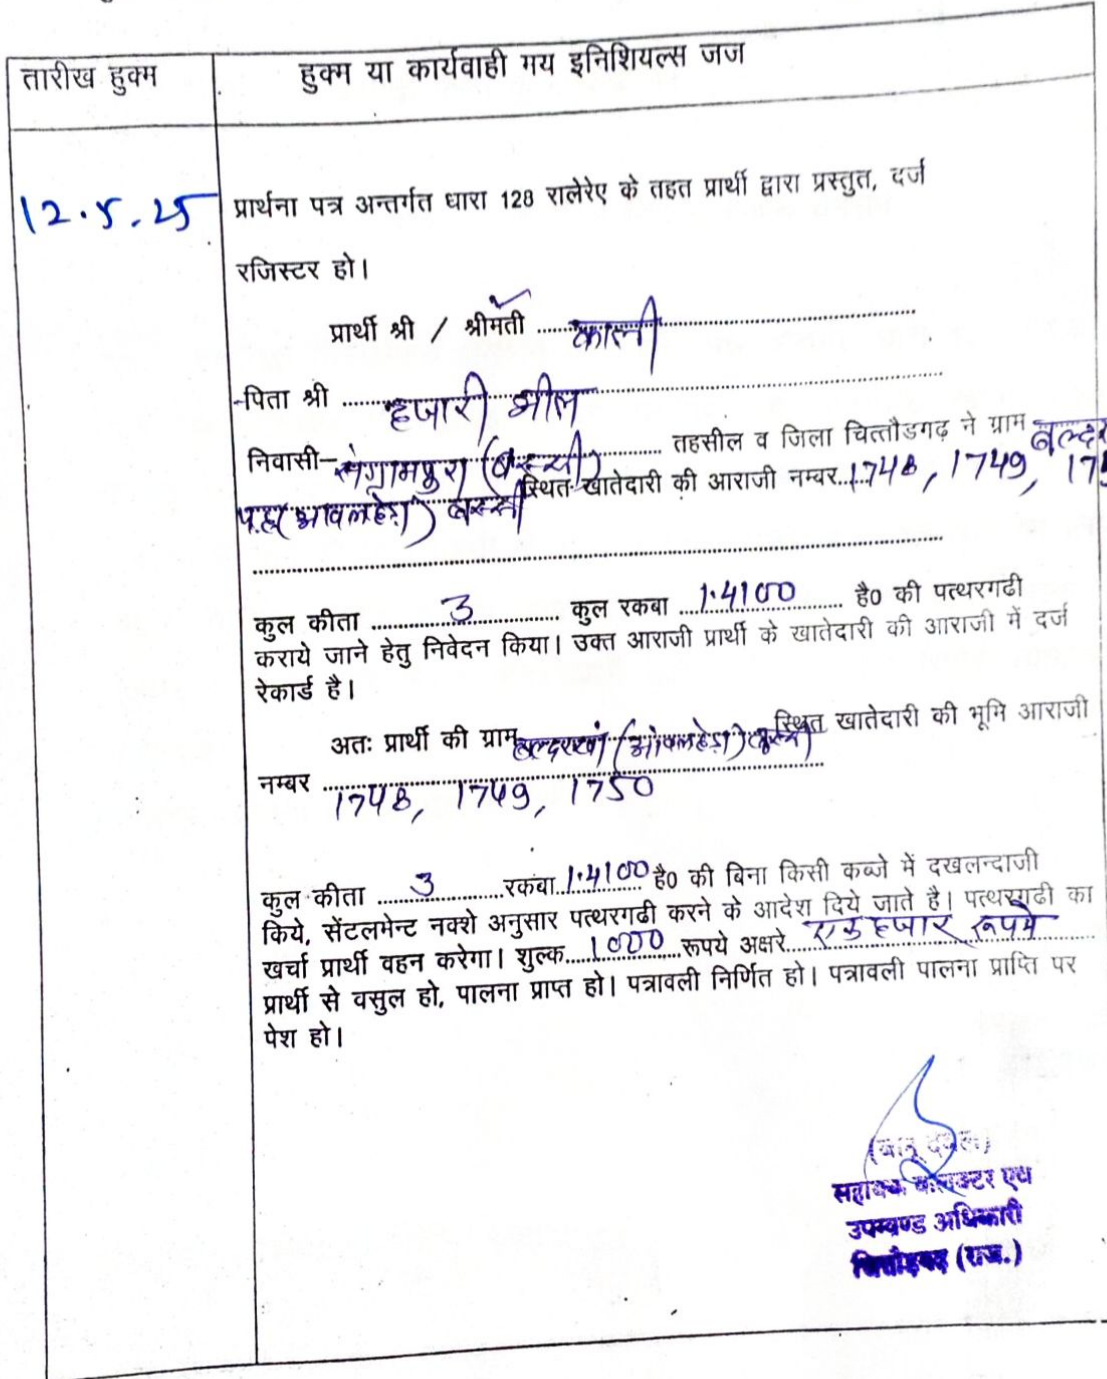 तारीख हुक्म
हुक्म या कार्यवाही मय इनिशियल्स जज
12.5.25
प्रार्थना पत्र अन्तर्गत धारा 128 रालेरेए के तहत प्रार्थी द्वारा प्रस्तुत, दर्ज
रजिस्टर हो।
प्रार्थी श्री / श्रीमती काली
पिता श्री हजारी भील
निवासी- संग्रामपुरा (बस्सी) तहसील व जिला चित्तौडगढ़ ने ग्राम
स्थित खातेदारी की आराजी नम्बर 1748, 1749,
बस्सी
कुल कीता 3 कुल रकबा 1.4100 है0 की पत्थरगढी
कराये जाने हेतु निवेदन किया। उक्त आराजी प्रार्थी के खातेदारी की आराजी में दर्ज
रेकार्ड है।
अतः प्रार्थी की ग्राम स्थित खातेदारी की भूमि आराजी
नम्बर
1748, 1749, 1750
कुल कीता 3 रकबा 1.4100 है0 की बिना किसी कब्जे में दखलन्दाजी
किये, सेंटलमेन्ट नक्शे अनुसार पत्थरगढी करने के आदेश दिये जाते है। पत्थरगढी का
खर्चा प्रार्थी वहन करेगा। शुल्क 1000 रूपये अक्षरे एक हजार रूपये
प्रार्थी से वसुल हो, पालना प्राप्त हो। पत्रावली निर्णित हो। पत्रावली पालना प्राप्ति पर
पेश हो।
सहायक कलक्टर एवं
उपखण्ड अधिकारी
चित्तौड़गढ़ (राज.)